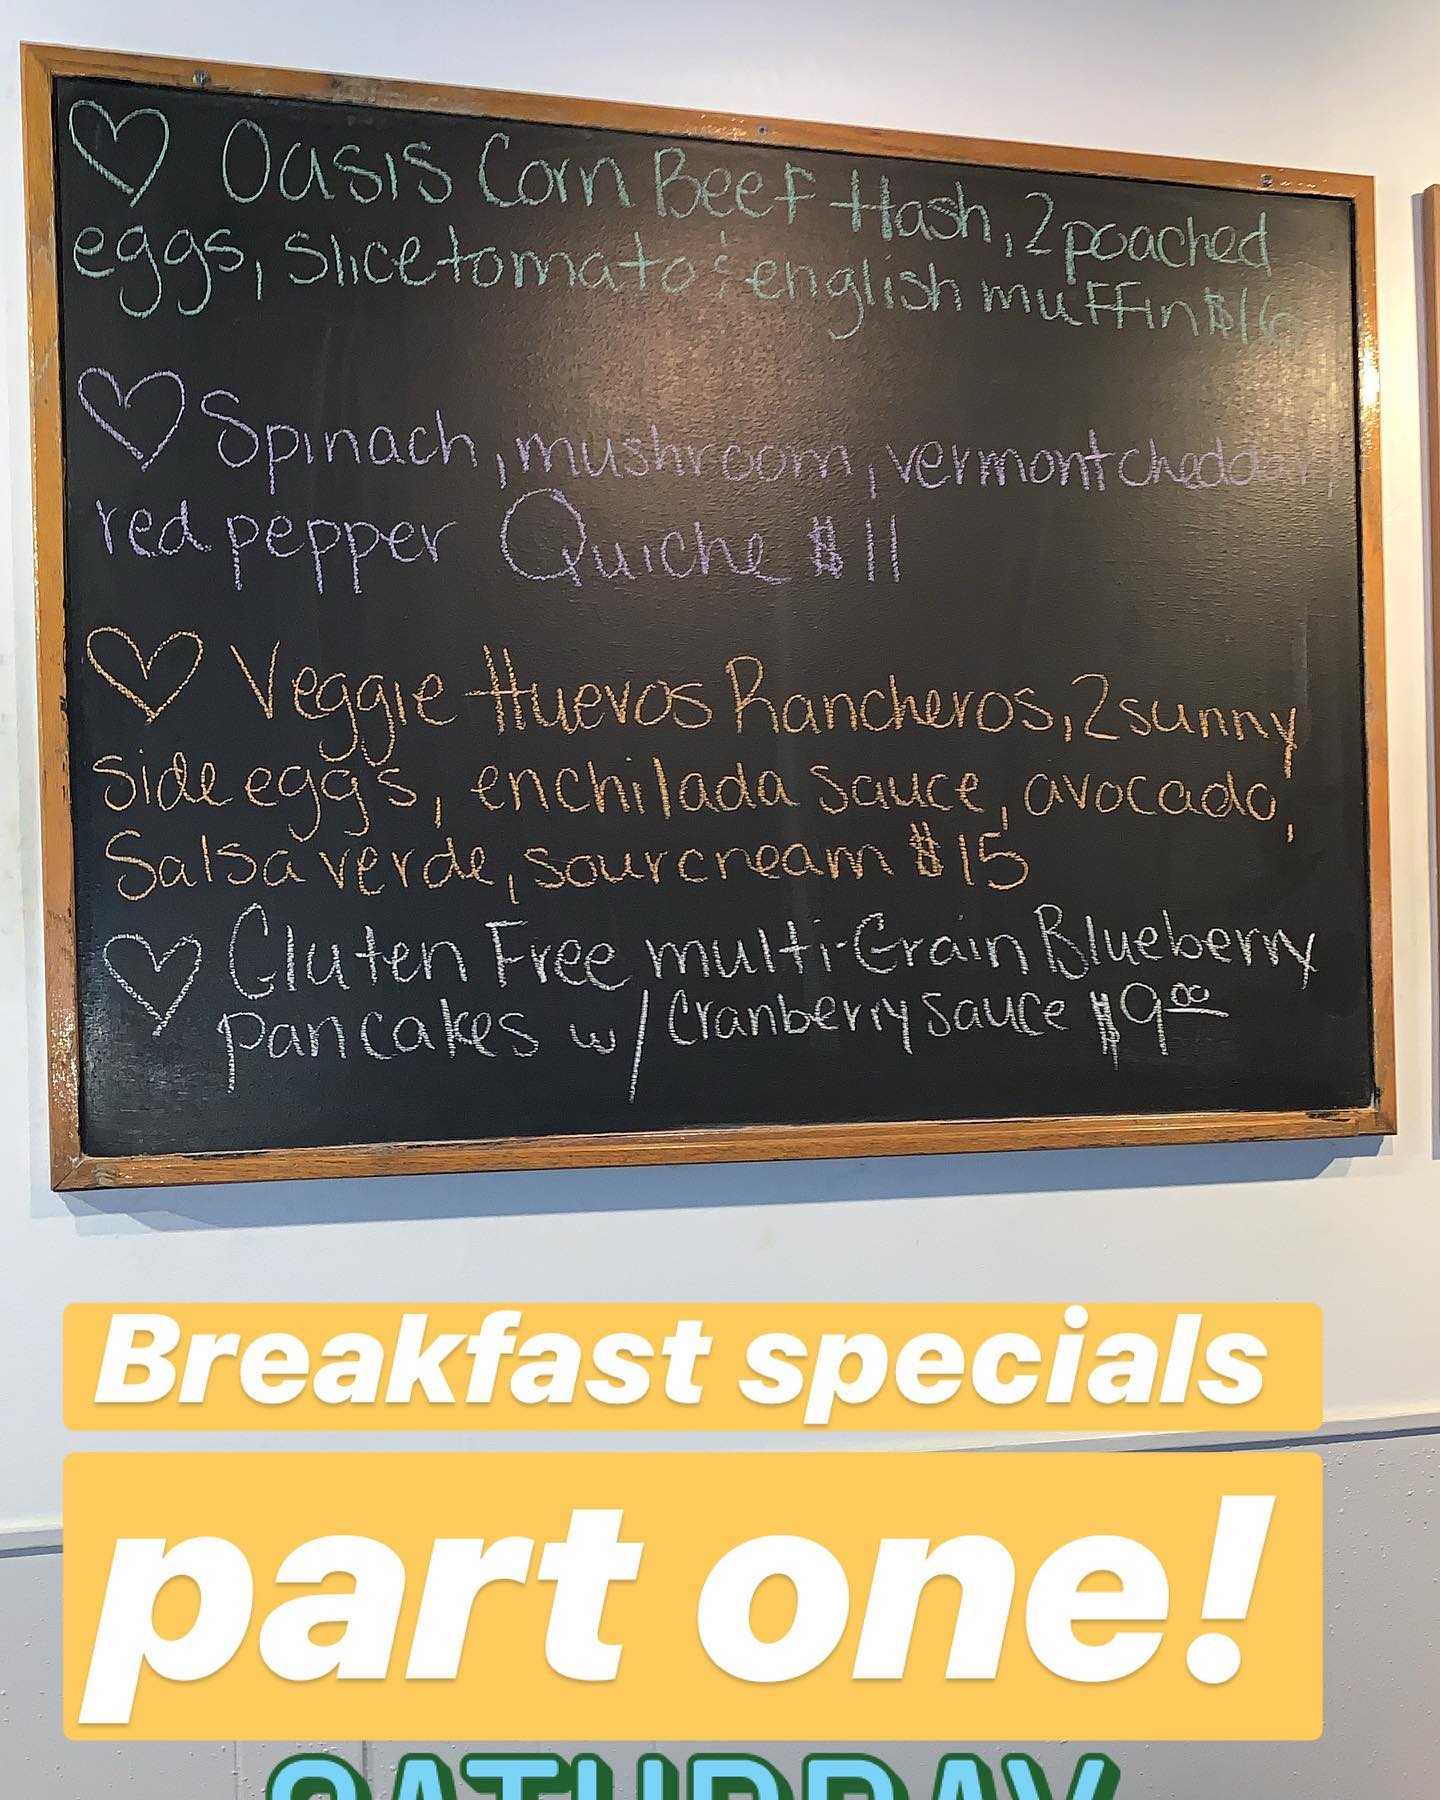 Oasis Corn Beef Hash, 2 poached
eggs, slice tomato & english muffin $16
Spinach, mushroom, vermont cheddar,
red pepper Quiche $11
Veggie Huevos Rancheros, 2 sunny
side eggs, enchilada sauce, avocado,
Salsa verde, sour cream $15
Gluten Free multi-Grain Blueberry
pancakes w/ Cranberry sauce $9.00
Breakfast specials
part one!
SATURDAY